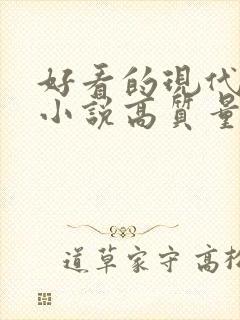 好看的現代
小說高質量
道草家守 高松